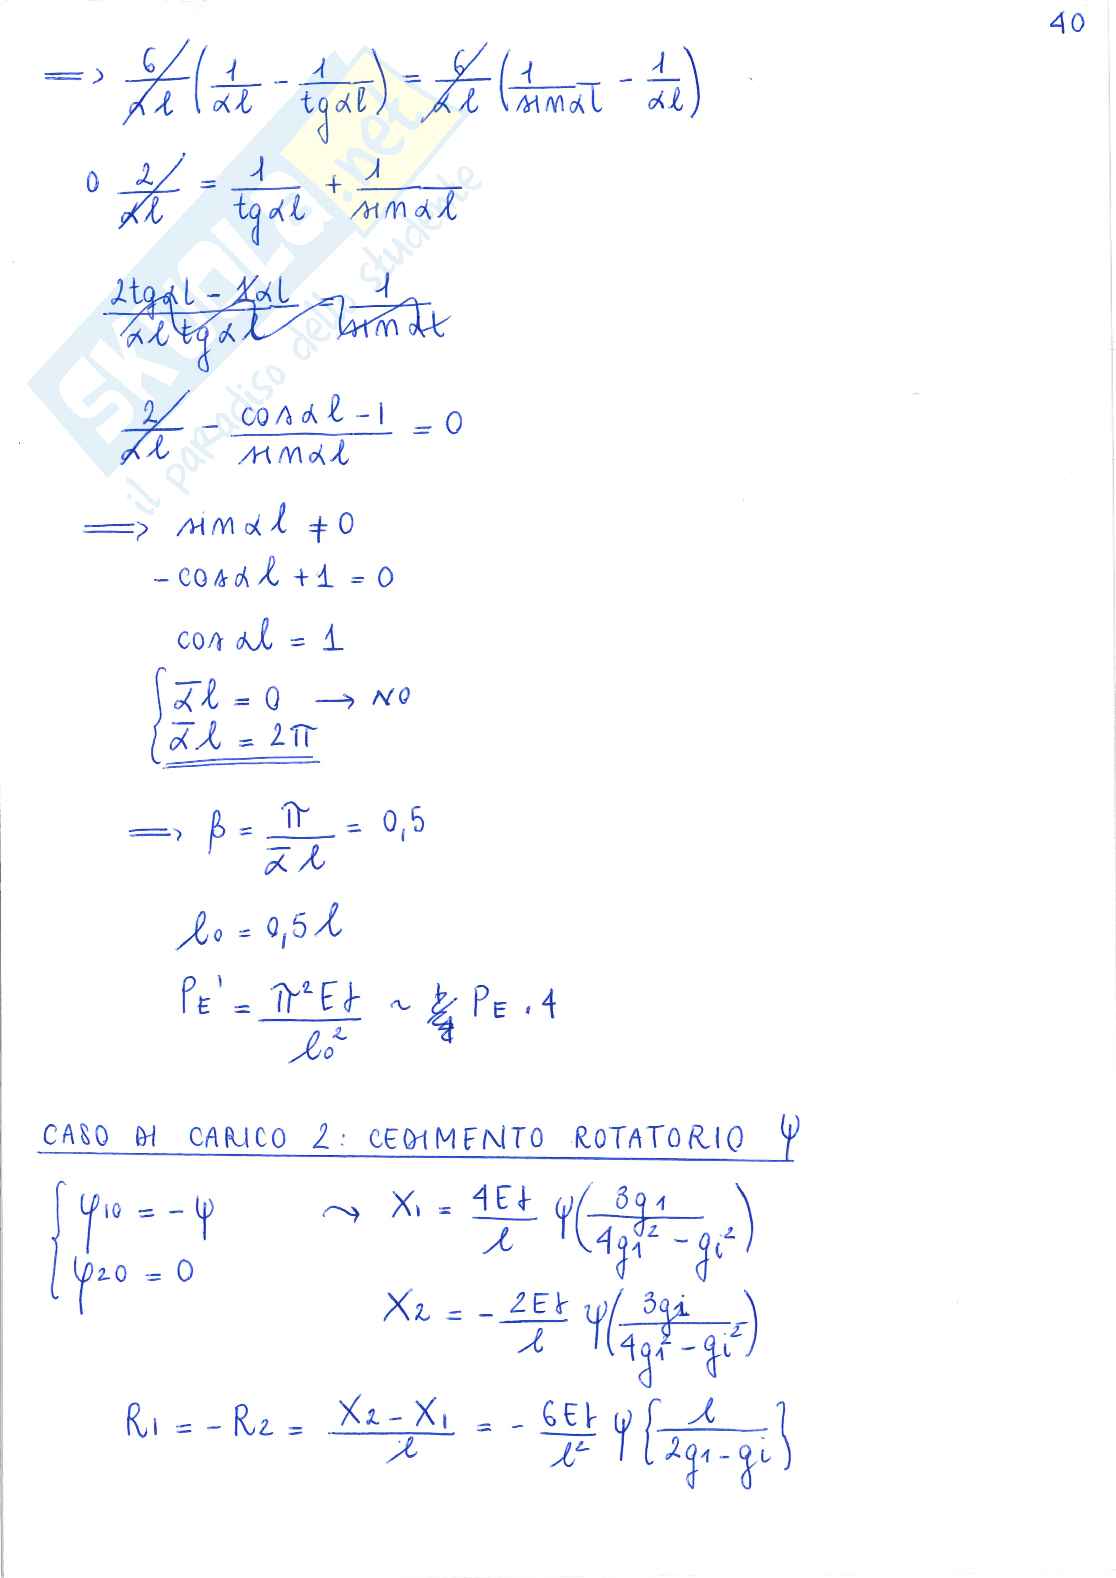 40
=> 6/αl (1/αl - 1/tgαl) = 6/αl (1/sinαl - 1/αl)
0 2/αl = 1/tgαl + 1/sinαl
2tgαl - 1αl / αl tgαl = 1/sinαl
2/αl - cosαl-1/sinαl = 0
=> sinαl ≠ 0
-cosαl + 1 = 0
cosαl = 1
{ ᾱl = 0 → NO
ᾱl = 2π
=> β = π/ᾱl = 0,5
l0 = 0,5l
PE' = π²EJ/l0² ~ PE . 4
CASO DI CARICO 2: CEDIMENTO ROTATORIO ψ
{ φ10 = -ψ ⇝ X1 = 4EJ/l ψ(3g1/4g1²-gi²)
φ20 = 0
X2 = - 2EJ/l ψ(3gi/4g1²-gi²)
R1 = -R2 = X2-X1/l = - 6EJ/l² ψ{l/2g1-gi}
SKUOLA.net
il paradiso dello studente